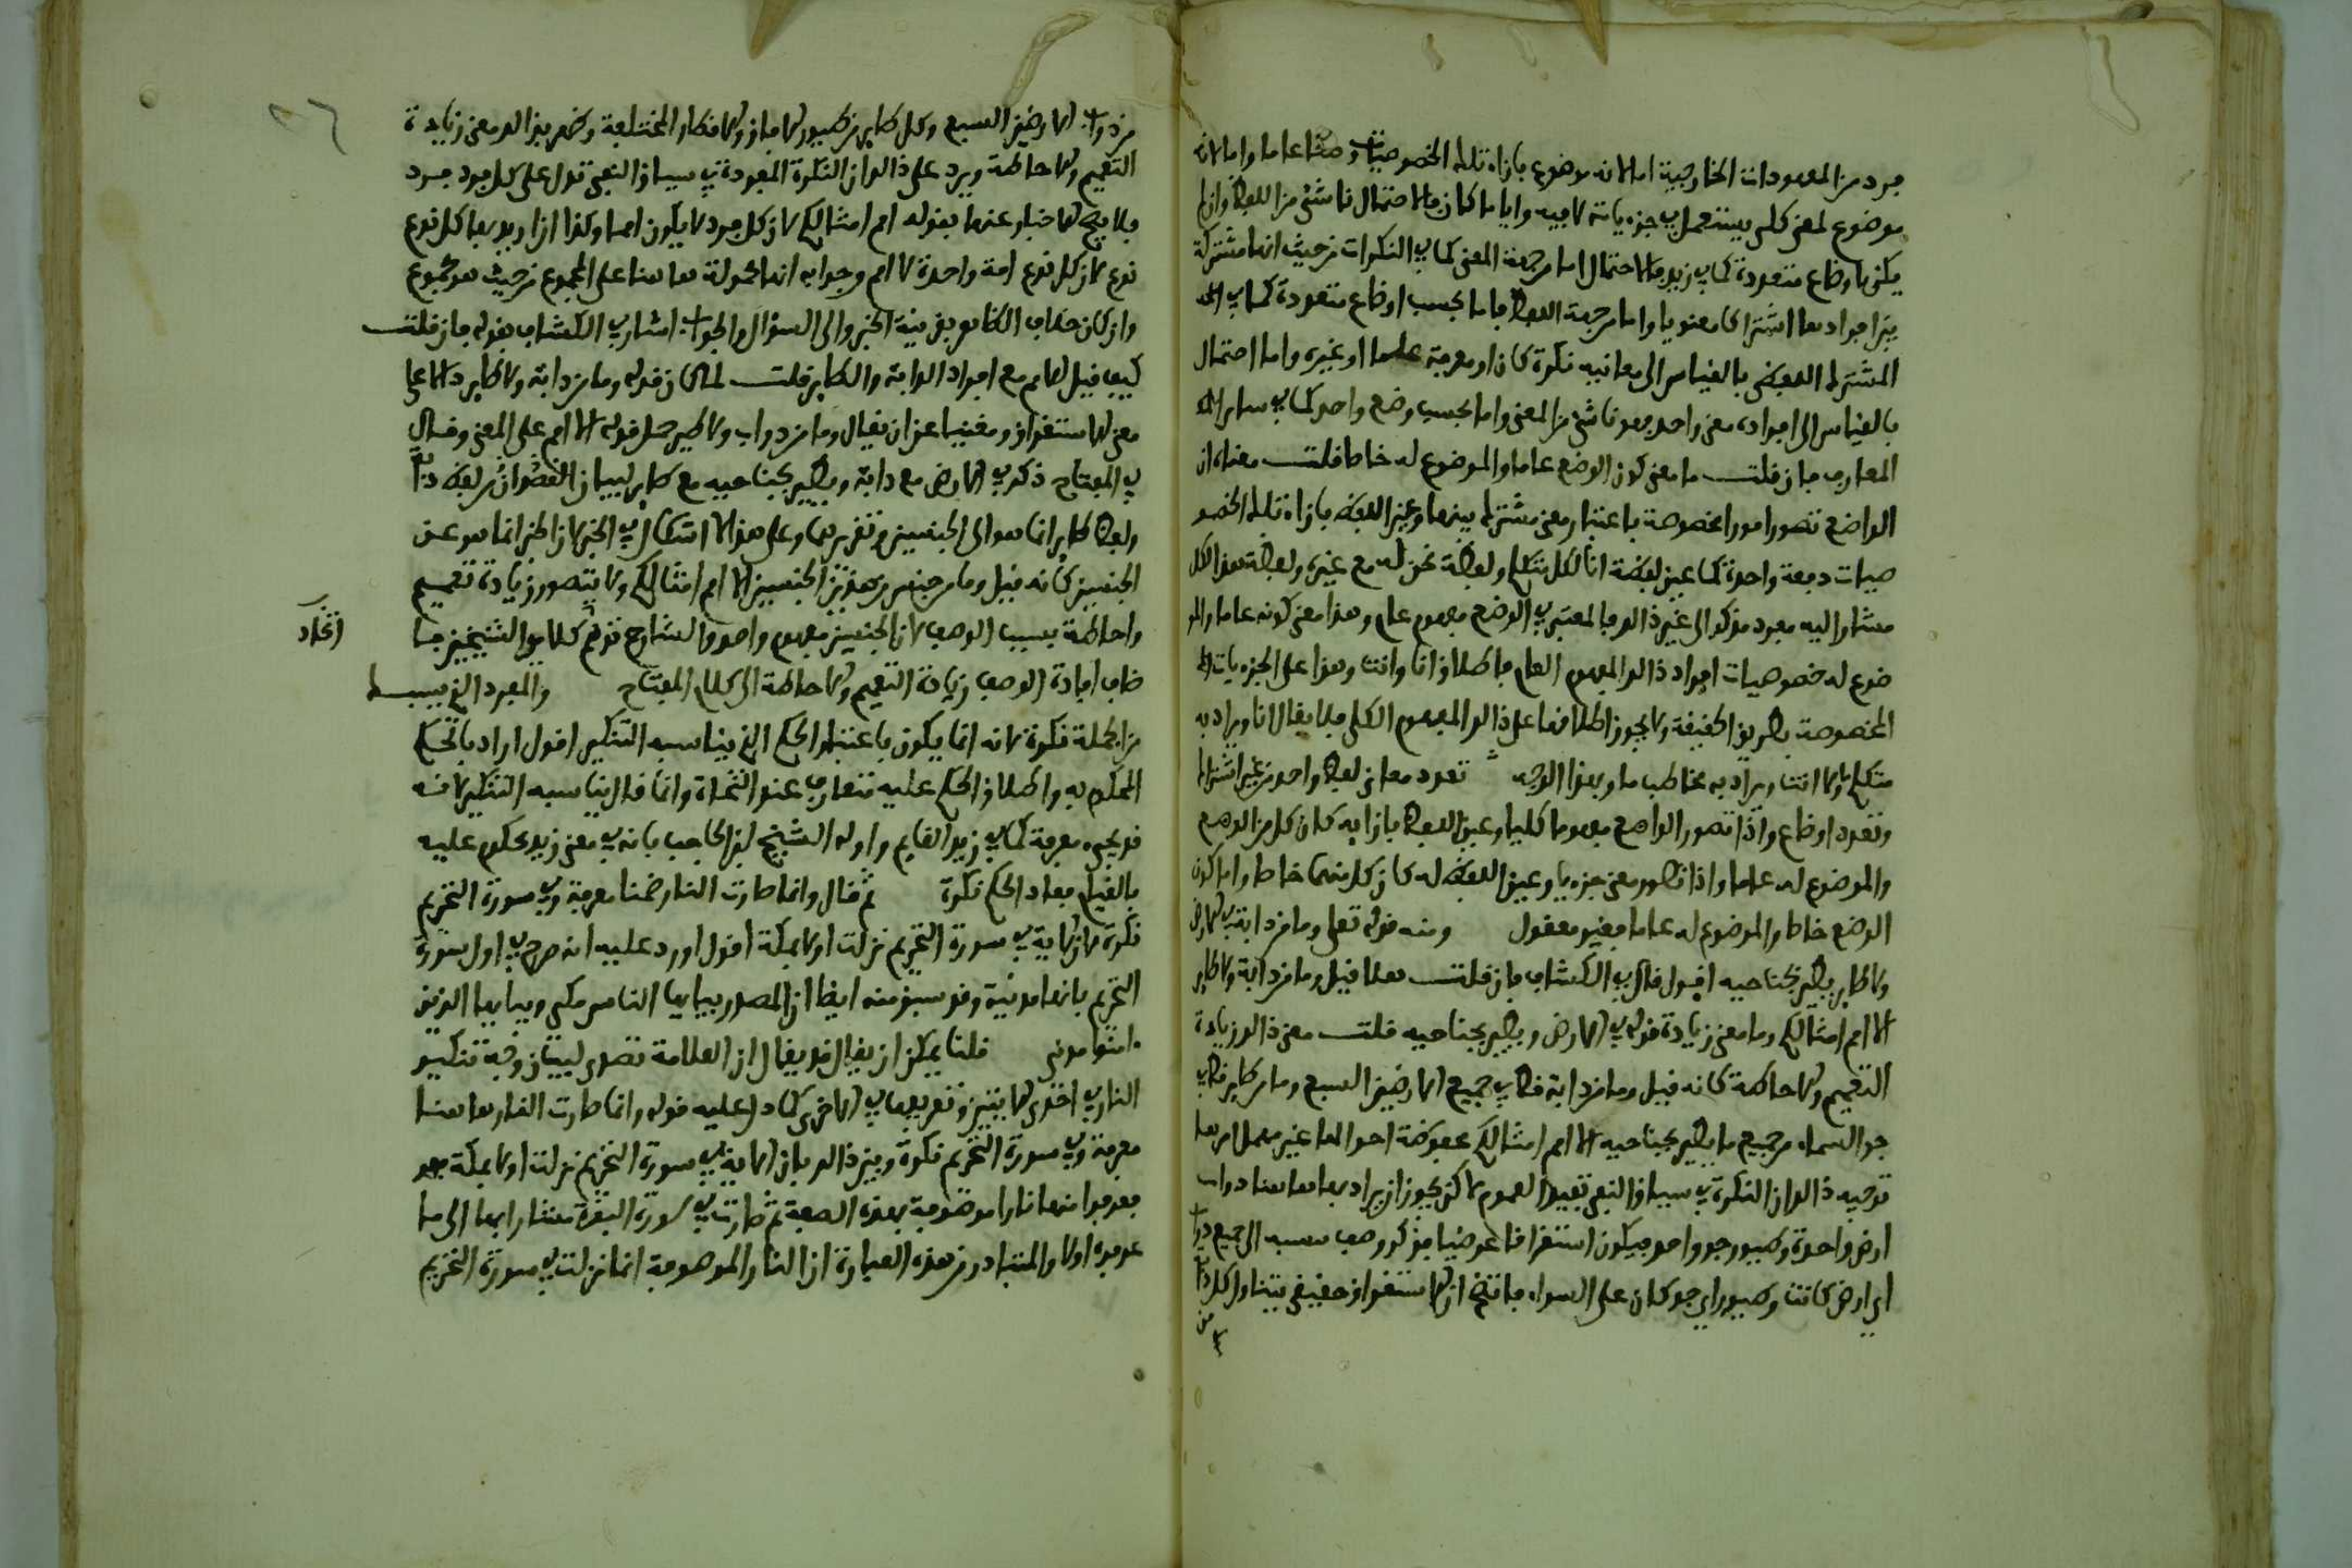 فرد من المعهودات الخارجية اما لانه موضوع بازاء تلك الخصوصيات وضعا عاما واما لانه
موضوع لمعنى كلي يستعمل في جزءياته لا فيه وايا ما كان فالاحتمال ناشئ من اللفظ وان لم
يكن باوضاع متعددة كما في زيد فالاحتمال اما من جهة المعنى كما في النكرات من حيث انها مشتركة
بين افرادها اشتراكا معنويا واما من جهة اللفظ فاما بحسب اوضاع متعددة كما في
المشترك اللفظي بالقياس الى معانيه نكرة كان او معرفة علما او غيره واما احتمال
بالقياس الى افراده معنى واحد فهو ناشئ من المعنى واما بحسب وضع واحد كما في ساير
المعارف فان قلت ما معنى كون الوضع عاما والموضوع له خاصا قلت معناه ان
الواضع تصور امورا مخصوصة باعتبار معنى مشترك بينها وعين اللفظ بازاء تلك الخصو
صيات دفعة واحدة كما عين لفظة انا لكل متكلم ولفظة نحن له مع غيره ولفظة هذا لكل
مشار اليه مفرد مذكر الى غير ذلك فالمعتبر في الوضع مفهوم عام وهذا معنى كونه عاما والمو
ضوع له خصوصيات افراد ذلك المفهوم العام فاطلاق انا وانت وهذا على الجزءيات
المخصوصة بطريق الحقيقة ولا يجوز اطلاقها على ذلك المفهوم الكلي فلا يقال انا ويراد به
متكلم ما ولا انت ويراد به مخاطب ما وبهذا الوجه تعدد معاني لفظ واحد من غير اشتراك
وتعدد اوضاع واذا تصور الواضع مفهوما كليا وعين اللفظ بازايه كان كل من الوضع
والموضوع له عاما واذا تصور معنى جزءيا وعين اللفظ له كان كل منهما خاصا واما كون
الوضع خاصا والموضوع له عاما فغير معقول ومنه قوله تعلى وما من دابة في الارض
ولا طاير يطير بجناحيه اقول قال في الكشاف فان قلت هلا قيل وما من دابة ولا طاير
الا امم امثالكم وما معنى زيادة قوله في الارض ويطير بجناحيه قلت معنى ذلك زيادة
التعميم والاحاطة كانه قيل وما من دابة قط في جميع الارضين السبع وما من طاير قط في
جو السماء من جميع ما يطير بجناحيه الا امم امثالكم محفوظة احوالها غير مهمل امرها
توجيه ذلك ان النكرة في سياق النفي تفيد العموم لاكن يجوز ان يراد بها هاهنا دواب
ارض واحدة وطيور جو واحد فيكون استغراقا عرفيا فذكر وصف نسبه الى جميع دواب
اي ارض كانت وطيور اي جو كان على السواء فاتضح ان الاستغراق حقيقي يتناول كل دابة
من
من دواب الارضين السبع وكل طاير من طيور الافاق والاقطار المختلفة وظهر بذلك معنى زيادة
التعميم والاحاطة ويرد على ذلك ان النكرة المفردة في سياق النفي تدل على كل فرد فرد
فلا يصح الاخبار عنها بقوله امم امثالكم لان كل فرد لا يكون امما وكذا اذا اريد بها كل نوع
نوع لان كل نوع امة واحدة لا امم وجوابه انها محمولة هاهنا على المجموع من حيث هو مجموع
وان كان خلاف الظاهر بقرينة الخبر والى السؤال والجواب اشار في الكشاف بقوله فان قلت
كيف قيل الا امم مع افراد الدابة والطاير قلت لما كان قوله وما من دابة ولا طاير دالا على
معنى الاستغراق ومغنيا عن ان يقال وما من دواب ولا طير حمل قوله الا امم على المعنى وقال
في المفتاح ذكر في الارض مع دابة ويطير بجناحيه مع طاير لبيان ان القصد ان من لفظ دابة
ولفظ طاير انما هو الى الجنسين وتقريرهما وعلى هذا لا اشكال في الخبر لان الخبر انما هو عن
الجنسين كانه قيل وما من جنس من هذين الجنسين الا امم امثالكم ولا يتصور زيادة تعميم
واحاطة بسبب الوصف لان الجنسين مفهوم واحد والشارح توهم كلامي الشيخين فا
اتحاد
ضاف افادة الوصف زيادة التعميم والاحاطة الى كلام المفتاح والمفرد الذي يسبك
من الجملة نكرة لانه انما يكون باعتبار الحكم الذي يناسبه التنكير اقول اراد بالحكم
المحكوم به واطلاق الحكم عليه متعارف عند النحاة وانما قال يناسبه التنكير لانه
قد يجيء معرفة كما في زيد القايم واوله الشيخ ابن الحاجب بانه في معنى زيد محكوم عليه
بالقيام فعاد الحكم نكرة ثم قال وانما صارت النار هنا معرفة وفي سورة التحريم
نكرة لان الاية في سورة التحريم نزلت اولا بمكة اقول اورد عليه انه صرح في اول سورة
التحريم بانها مدنية وقد سبق منه ايضا ان المصدر بيايها الناس مكي وبيايها الذين
ءامنوا مدني قلنا يمكن ان يقال قد يقال ان العلامة تصدى لبيان وجه تنكير
النار في احدى الايتين وتعريفها في الاخرى كما دل عليه قوله وانما صارت النار هاهنا
معرفة وفي سورة التحريم نكرة وبين ذلك بان الاية في سورة التحريم نزلت اولا بمكة
فعرفوا منها نارا موصوفة بهذه الصفة ثم صارت في سورة البقرة مشارا بها الى ما
عرفوه اولا والمتبادر من هذه العبارة ان النار الموصوفة انما نزلت في سورة التحريم